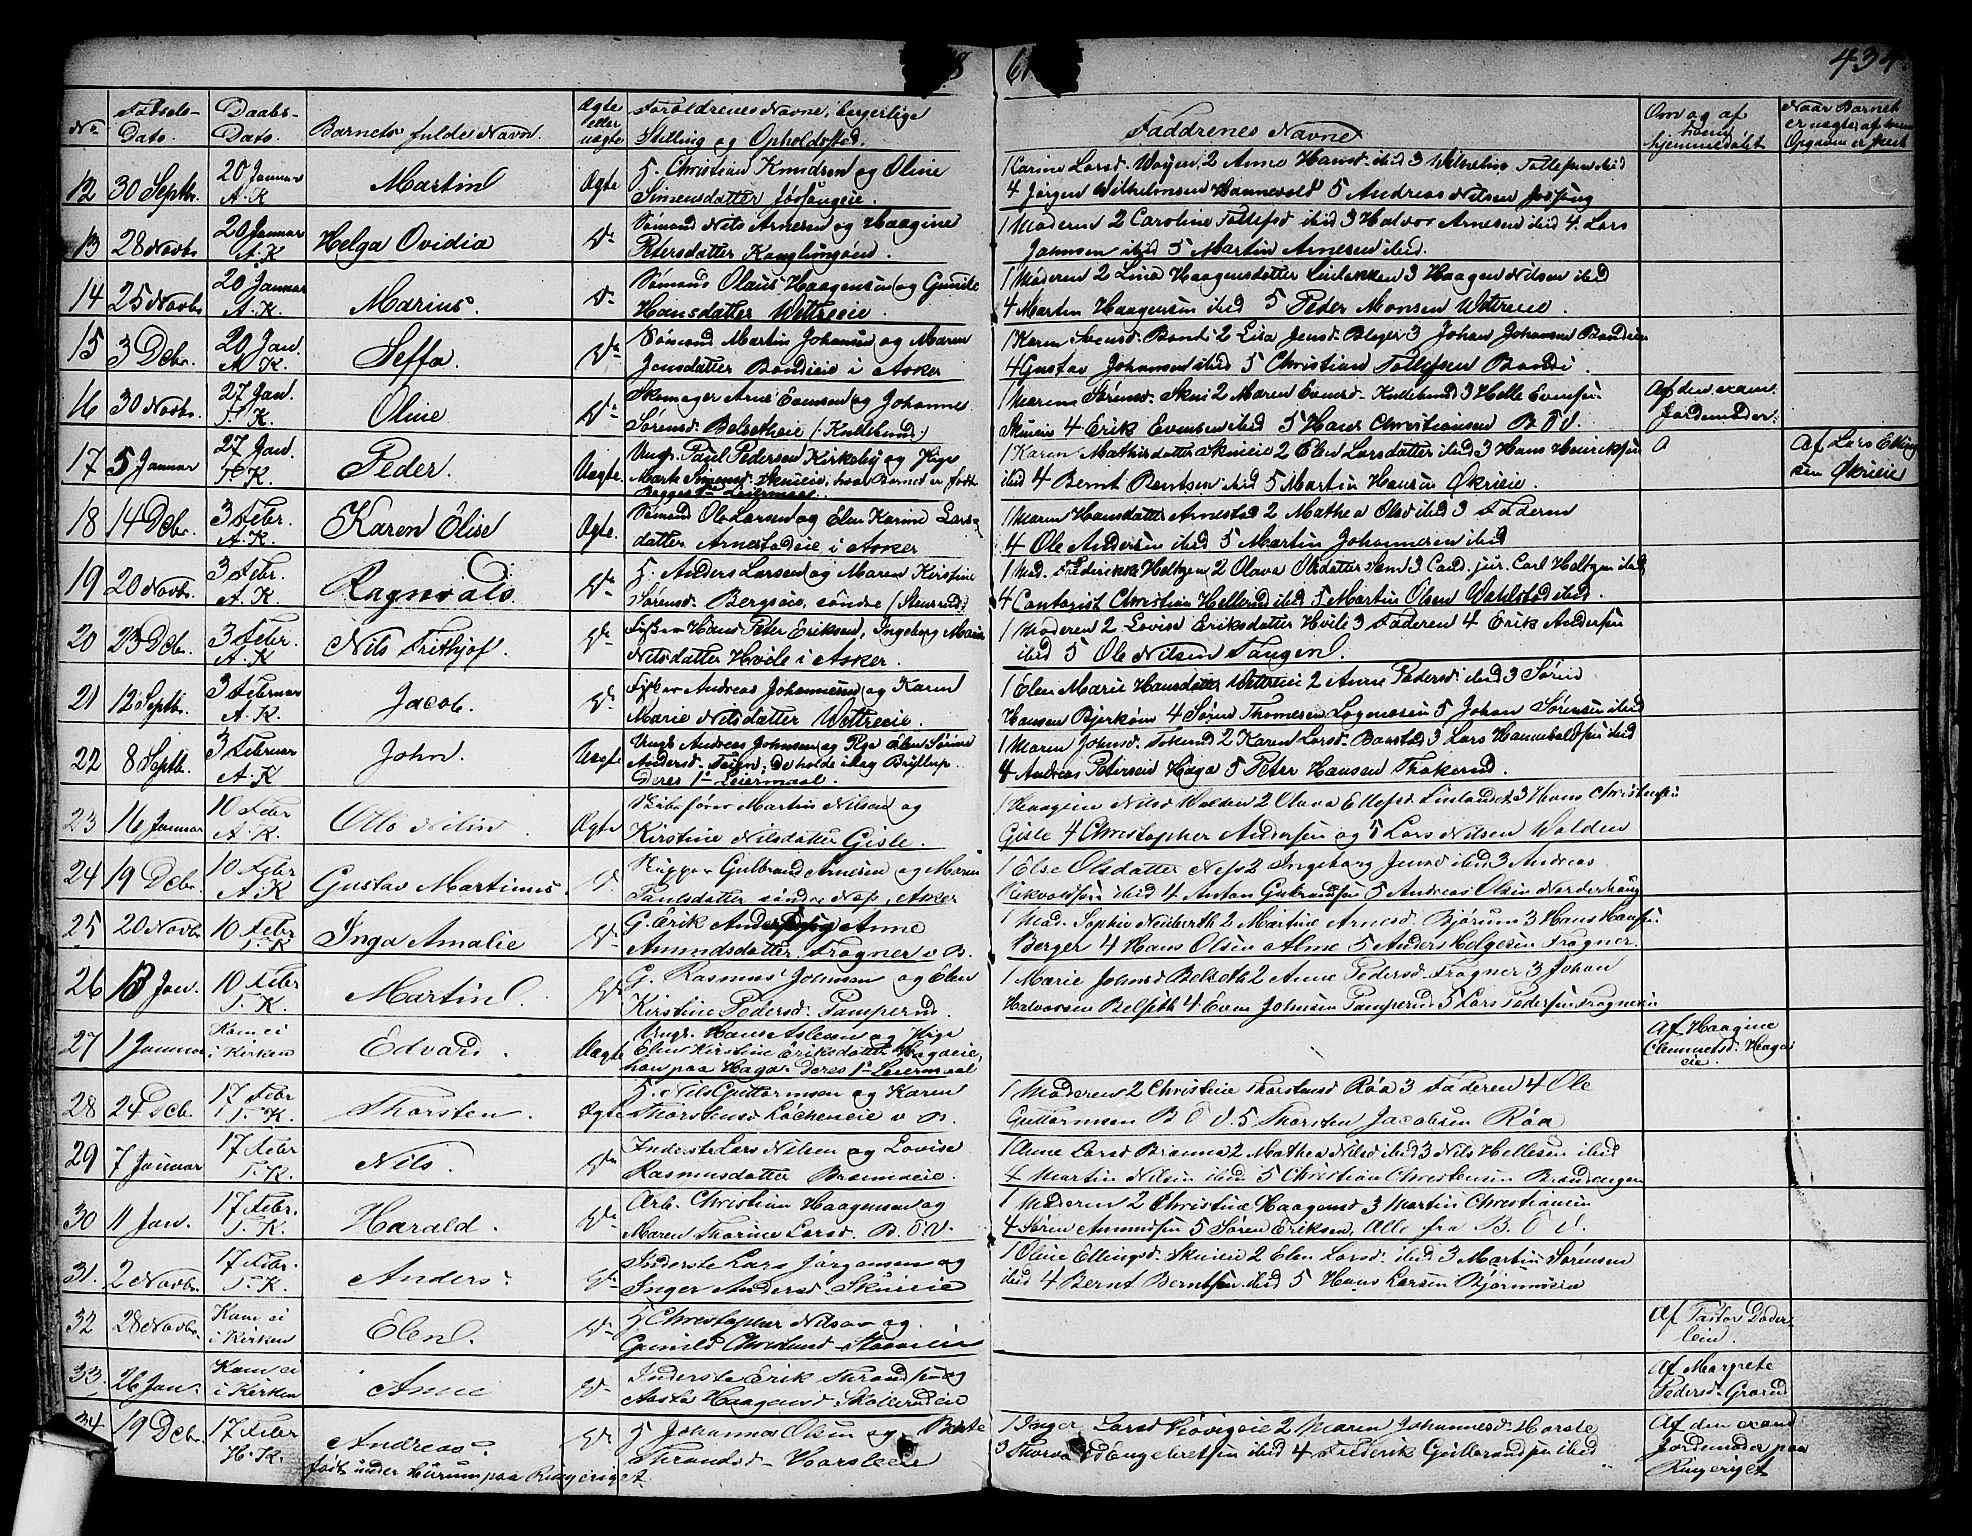 8 61 434.
No Fødsels- Dato. Daabs- Dato. Barnets fulde Navn. Ægte eller uægte Forældrenes Navne, borgerlige Stilling og Opholdssted. Faddrenes Navne Om og af hvem hjemmedøbt Naar Barnet er uægte, af hvem Opgaven er skeet
12 30 Septbr. 20 Januar A. K. Martin Ægte G. Christian Knudsen og Oline
Simensdatter
1 Karine Larsd. 2 Anne Hansd. ibid 3 ibid
4 Jørgen Wilhelmsen Hannevold 5 Andreas Nilsen
13 28 Novbr 20 Januar A. K. Helga Ovidia Do Sømand Nils Arnesen og Haagine
Petersdatter Konglungøen.
1 Moderen 2 Caroline Tollefsd ibid 3 Halvor Arnesen ibid 4. Lars
Johnsen ibid 5 Martin Arnesen ibid.
14 25 Novbr 20 Januar A. K. Marius. Do Sømand Olaus Haagensen og Gunilde
Hansdatter Wettreeie.
1 Moderen 2 Lina Haagensdatter 3 Haagen Nilsen ibid
4 Martin Haagensen ibid 5 Peder Monsen Wetreeie.
15 3 Decbr. 20 Jan. A. K. Seffa. Do Sømand Martin Johansen og Maren
Jensdatter Bondieie i Asker
1 Karen Bondi 2 Lisa Jensd. 3 Johan Johansen Bondieie
4 Gustav Johansen ibid 5 Christian Tollefsen Bondi.
16 30 Novbr. 27 Jan. T. K. Oline Do Skomager Arne Evensen og Johanne
Sørensd. Belsetheie
1 Maren Sørensd. Skui 2 Maren Evensd. 3 Helle Evensen
Skuieie 4 Erik Evensen ibid 5 Hans Christiansen B. Ø. V.
Af den exam. Jordemoder.
17 5 Januar 27 Jan. T. K. Peder. Uægte. Ungk. Paul Pedersen Kirkeby og Pige
Simensd. Skuieie, hvor Barnet er født
Begges 1ste Leiermaal.
1 Karen Mathisdatter Skuieie 2 Elen Larsdatter ibid 3 Hans Henriksen
ibid 4 Bernt Bentsen ibid 5 Martin Hansen Økrieie.
Af Lars Ellingsen Økrieie
18 14 Decbr. 3 Febr. A. K. Karen Elise Ægte. Sømand Ole Larsen og Elen Karine Lars-
datter Arnestadeie i Asker
1 Maren Hansdatter Arnestad 2 Mathea Olsd ibid 3 Faderen
4 Ole Andersen ibid 5 Martin Johannesen ibid
19 20 Novbr. 3 Febr. A. K. Ragnvald. Do G. Anders Larsen og Maren Kirstine
Sørensd. Bergseie, søndre
1 Mad. Frederikke Holtzen 2 Olava Olsdatter 3 Cand. jur. Carl Holtzen ibid
4 Contorist Christian Hellerud ibid 5 Martin Olsen Wahlstad ibid.
20 23 Decbr. 3 Febr. A. K. Nils Frithjof. Do Hans Peter Eriksen, Ingeborg Marie
Nilsdatter Hvile i Asker.
1 Moderen 2 Lovise Eriksdatter Hvile 3 Faderen 4 Erik Andersen
ibid 5 Ole Nilsen Tangen.
21 12 Septbr. 3 Februar A. K. Jacob. Do Andreas Johannesen og Karen
Marie Nilsdatter Wettreeie.
1 Elen Marie Hansdatter Wettreeie 2 Anne Pedersd. ibid 3 Søren
Hansen Bjerkøen 4 Søren Thomesen 5 Johan Sørensen ibid
22 8 Septb. 3 Februar A. K. John. Uægte Ungk Andreas Johnsen og Pige Elen Sørine
Andersd. de holde idag Bryllup.
Deres 1ste Leiermaal.
1 Maren Johnsd. 2 Karen Larsd. 3 Lars Hannibaldsen ibid
4 Andreas Petersen Haga 5 Peter Hansen
23 16 Januar 10 Febr A. K. Otto Nilsen Ægte Martin Nilsen og
Kirstine Nilsdatter Gisle.
1 Nilsd 2 Olava Ellefsd 3 Hans Christensen
Gisle 4 Christopher Andersen og 5 Lars Nilsen Wolden
24 19 Decbr. 10 Febr A. K. Gustav Martinus. Do Gulbrand Arnesen og Maren
Paulsdatter søndre Næs, Asker
1 Else Olsdatter Næs 2 Ingeborg Jensd ibid 3 Andreas
ibid 4 Anton Gulbrandsen 5 Andreas Olsen Norderhaug
25 20 Novbr. 10 Febr T. K. Inga Amalie Do G. Erik Andersen og Anne
Amundsdatter, Frogner v B.
1 Mad. Sophie Neuberth 2 Martine Arnesd. Bjørum 3 Hans Hansen
Berger 4 Hans Olsen Alme 5 Anders Helgesen Frogner.
26 13 Jan. 10 Febr T. K. Martin. Do G. Rasmus Johnsen og Elen
Kirstine Pedersd. Pamperud
1 Marie Johnsd Belseth 2 Anne Pedersd. Frogner 3 Johan
Halvorsen Belseth 4 Even Johnsen Pamperud 5 Lars Pedersen Frognereie
27 1 Januar Kom ei i Kirken Edvard. Uægte Ungk. Hans Aslesen og Pige
Elen Kirstine Eriksdatter Hagaeie,
han paa Haga. Deres 1ste Leiermaal
Af Haagine Clemmetsd. Hagaeie.
28 24 Decb. 17 Febr T. K. Thorsten. Ægte G. Nils Guttormsen og Karen
Thorstensd. v B.
1 Moderen 2 Christine Thorstensd Røa 3 Faderen 4 Ole
Guttormsen B Ø V. 5 Thorsten Jacobsen Røa
29 7 Januar 17 Febr T. K. Nils. Do Inderste Lars Nilsen og Lovise
Rasmusdatter
1 Anne Larsd 2 Mathea Nilsd ibid 3 Nils Hellesen ibid
4 Martin Nilsen ibid 5 Christian Christensen Brandengen
30 11 Jan. 17 Febr. T. K. Harald. Do Arb. Christian Haagensen og
Maren Thorine Larsd. B. Ø. V.
1 Moderen 2 Christine Haagensd 3 Martin Christiansen
4 Søren Amundsen 5 Søren Eriksen, Alle fra B. Ø V.
31. 2 Novbr. 17 Febr. T. K. Anders. Do Inderste Lars Jørgensen og
Inger Andersd Skuieie
1 Oline Ellingsd. Skuieie 2 Elen Larsd. ibid 3 Martin Sørensen
ibid 4 Bernt Berntsen ibid 5 Hans Larsen
32 28 Novbr. Kom ei i Kirken Elen. Do G. Christopher Nilsen og
Gunild
Af Pastor Døderlein.
33. 26 Jan. Kom ei i Kirken Anne Do Inderste Erik Thrandsen og
Aaste Haagensd.
Af Margrete Pedersd. Grorud
34 19 Decbr. 17 Febr H. K. Andreas. Do G. Johannes Olsen og Berte
født under Hurum paa Ringeriget. Thrandsd. Horsleeie
1 Inger Larsd Høvigeie 2 Maren Johannesd. Horsle
3 Thorvald Engebretsen ibid 4 Frederik Gulbrandsen ibid
Af den exam Jordemoder paa Ringeriget